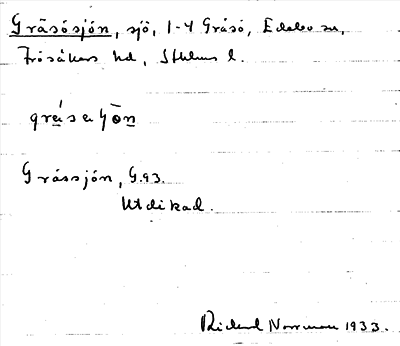 Gräsösjön, sjö, 1-4 Gräsö, Edebo sn,
Frösåkers hd, Sthlms l.
Gräsösjön, G.93.
Utdikad.
Rickard Norrman 1933.